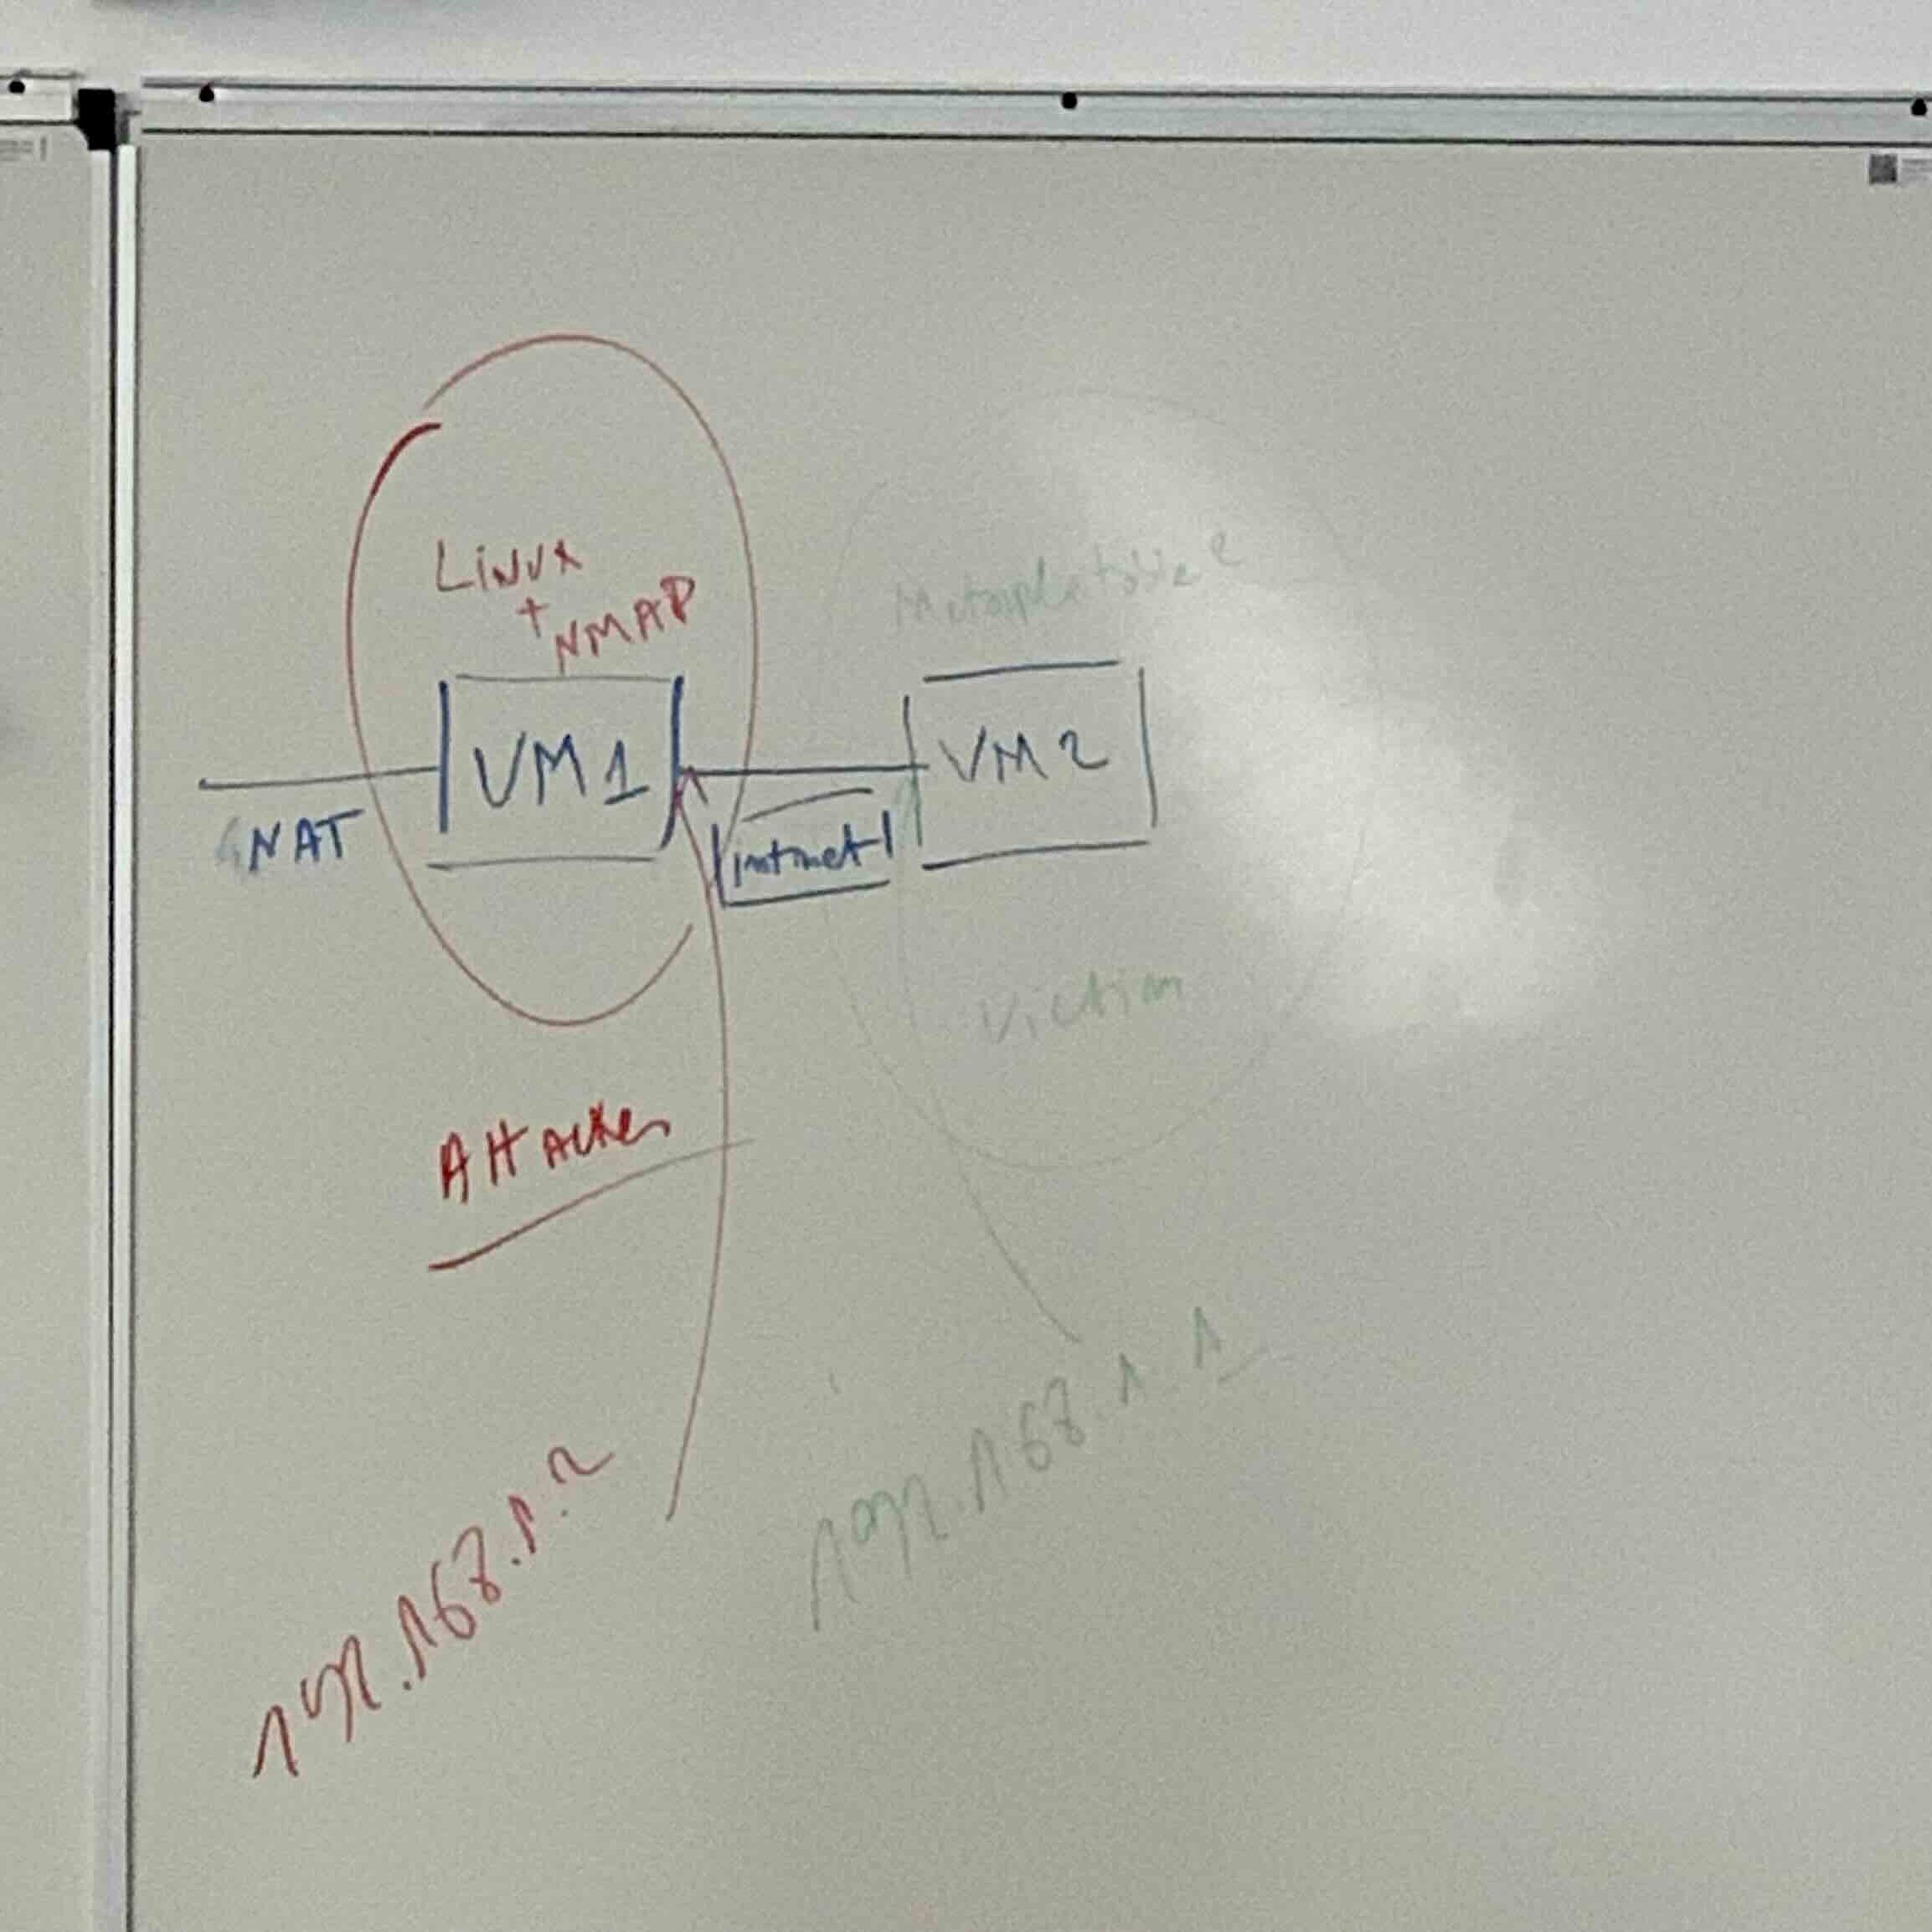 Linux
+ NMAP
Metasploitable 2
VM1
VM2
NAT
intnet
Victim
Attacker
192.168.1.2
192.168.1.1